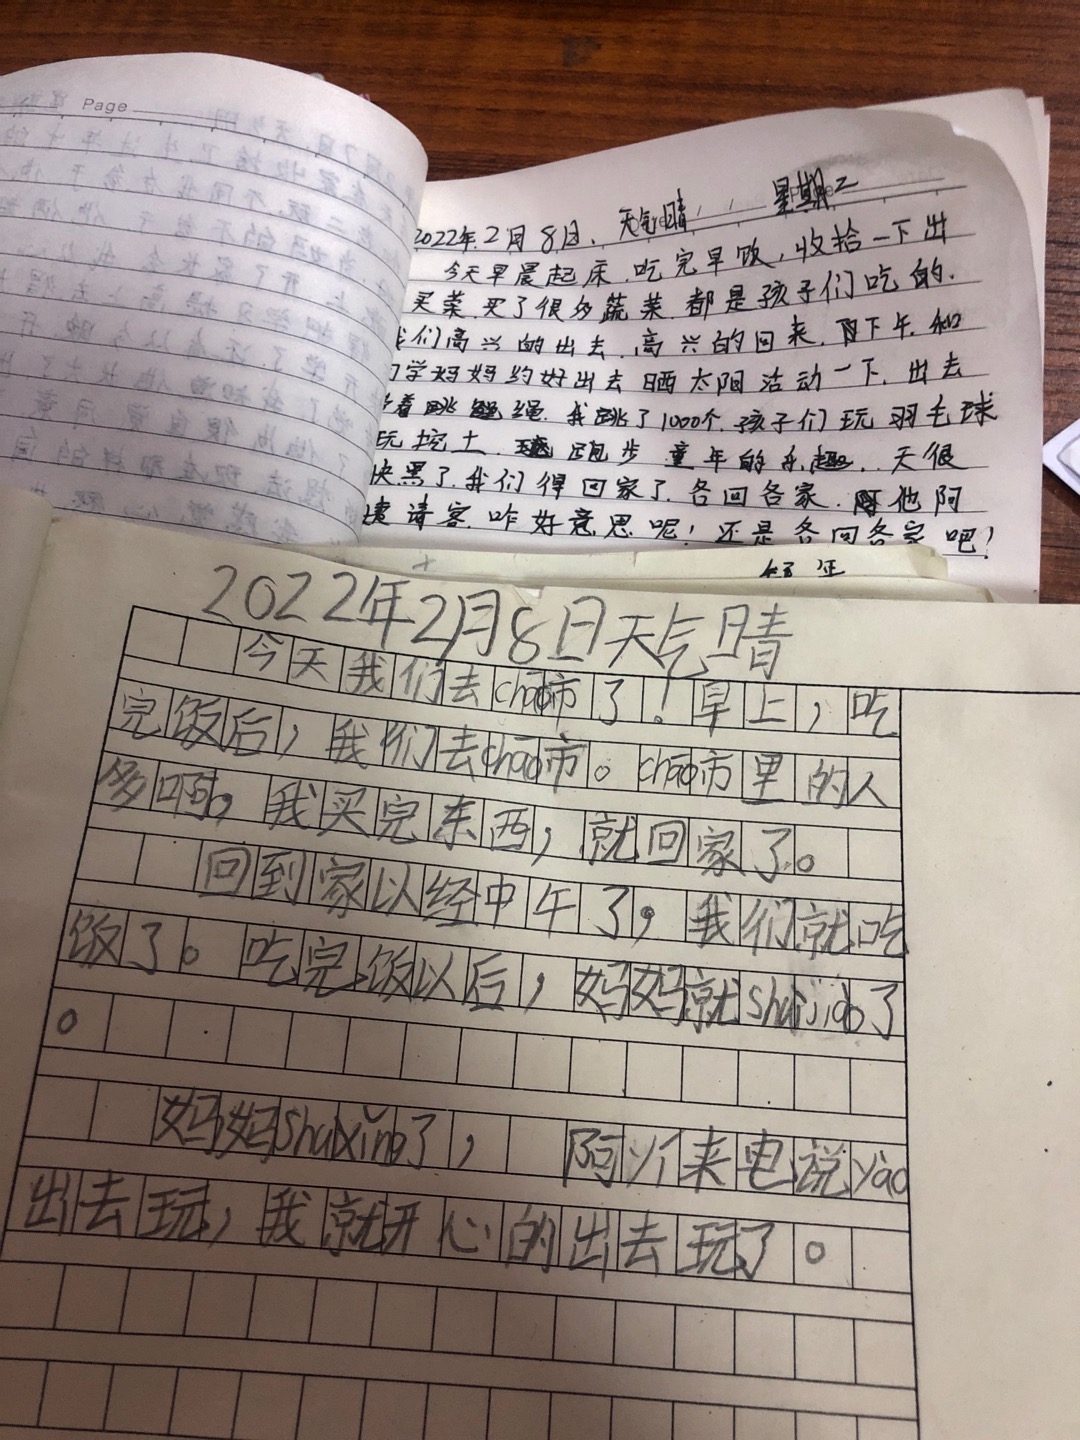 Page
2022年2月8日、天气晴、星期二
今天早晨起床.吃完早饭,收拾一下出
买菜.买了很多蔬菜都是孩子们吃的.
我们高兴的出去.高兴的回来.下午.和
同学妈妈约好出去晒太阳活动一下.出去
跳绳.我跳了1000个.孩子们玩羽毛球
玩挖土.跑步童年的乐趣..天很
快黑了.我们得回家了.各回各家.他阿
请客.咋好意思呢!还是各回各家吧!
2022年2月8日天气晴
今天我们去chao市了!早上,吃
完饭后,我们去chao市。chao市里的人
多啊,我买完东西,就回家了。
回到家以经中午了,我们就吃
饭了。吃完饭以后,妈妈就shuijiao了
。
妈妈shuixǐng了,阿yi来电说yào
出去玩,我就开心的出去玩了。